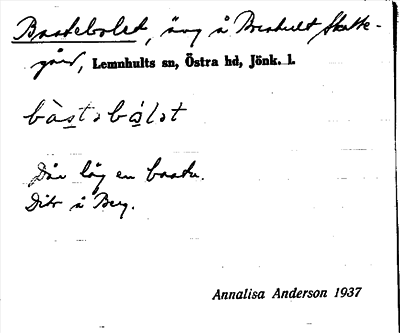 Bastebolet, äng å Brenhult Skatte-
gård, Lemnhults sn, Östra hd, Jönk. l.
bàstəbólət
Där låg en bastu.
Dito å Berg.
Annalisa Anderson 1937